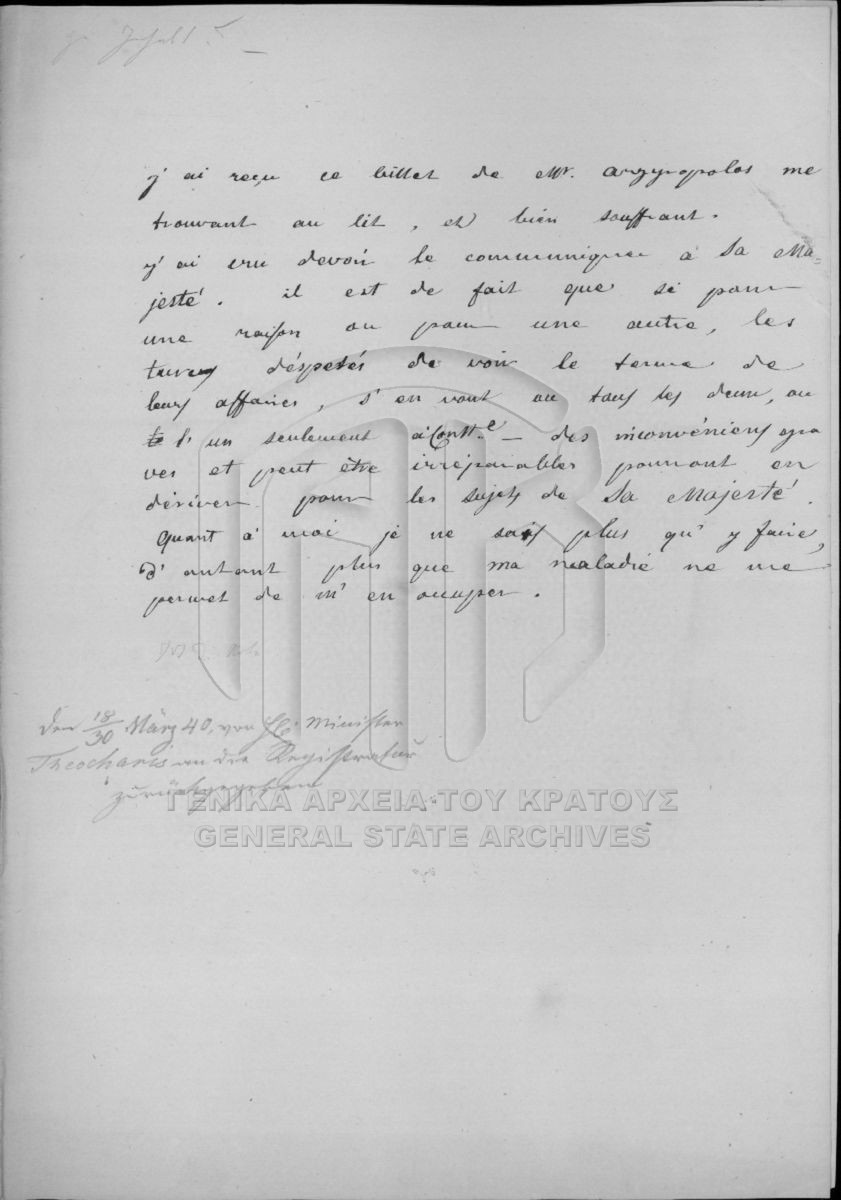 j'ai reçu ce billet de Mr. Argyropolos me
trouvant au lit, et bien souffrant.
j'ai cru devoir le communiquer à Sa Ma-
jesté. il est de fait que si pour
une raison ou pour une autre, les
turcs déspetés de voir le terme de
leurs affaires, s'en vont ou tous les deux, ou
l'un seulement à Constle — des inconvéniens gra
ves et peut être irréparables pourront en
dériver pour les sujets de Sa Majesté.
Quant à moi je ne sais plus qu'y faire,
d'autant plus que ma maladie ne me
permet de m'en occuper.
Den 18/30 März 40, von Hr. Minister
Theocharis an die Registratur
zurückgegeben
ΓΕΝΙΚΑ ΑΡΧΕΙΑ ΤΟΥ ΚΡΑΤΟΥΣ
GENERAL STATE ARCHIVES